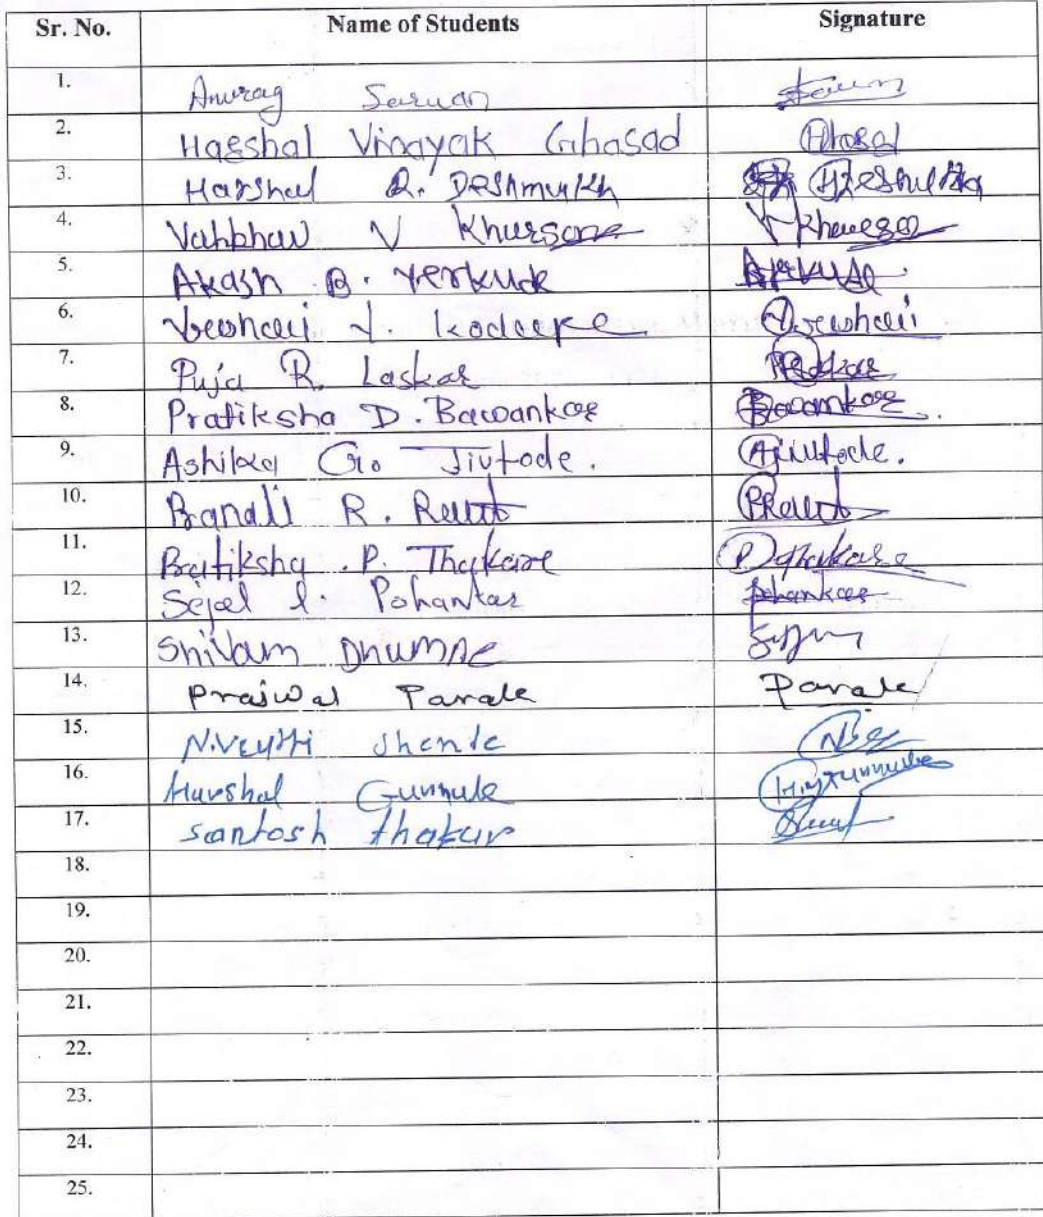 Sr. No. Name of Students Signature
1. Anurag
2. Harshal Vinayak Ghasad Ghosad
3. Harshal R. Deshmukh
4. Vahbhav V Khursane
5. Akash B. Yerkude
6. Vaishali Y.
7. Puja R. Laskar
8. Pratiksha D. Bawankar Bawankar
9. Ashika G. Jivtode. AJivtode.
10. Pranali R. Raut PRaut
11. Pratiksha .P. Thakare PThakare
12. Sejal Pohankar Pohankar
13. Shivam Dhumne
14. Prajwal Parale Parale
15. Shende
16. Harshal Gunnule
17. Santosh Thakur
18.
19.
20.
21.
22.
23.
24.
25.